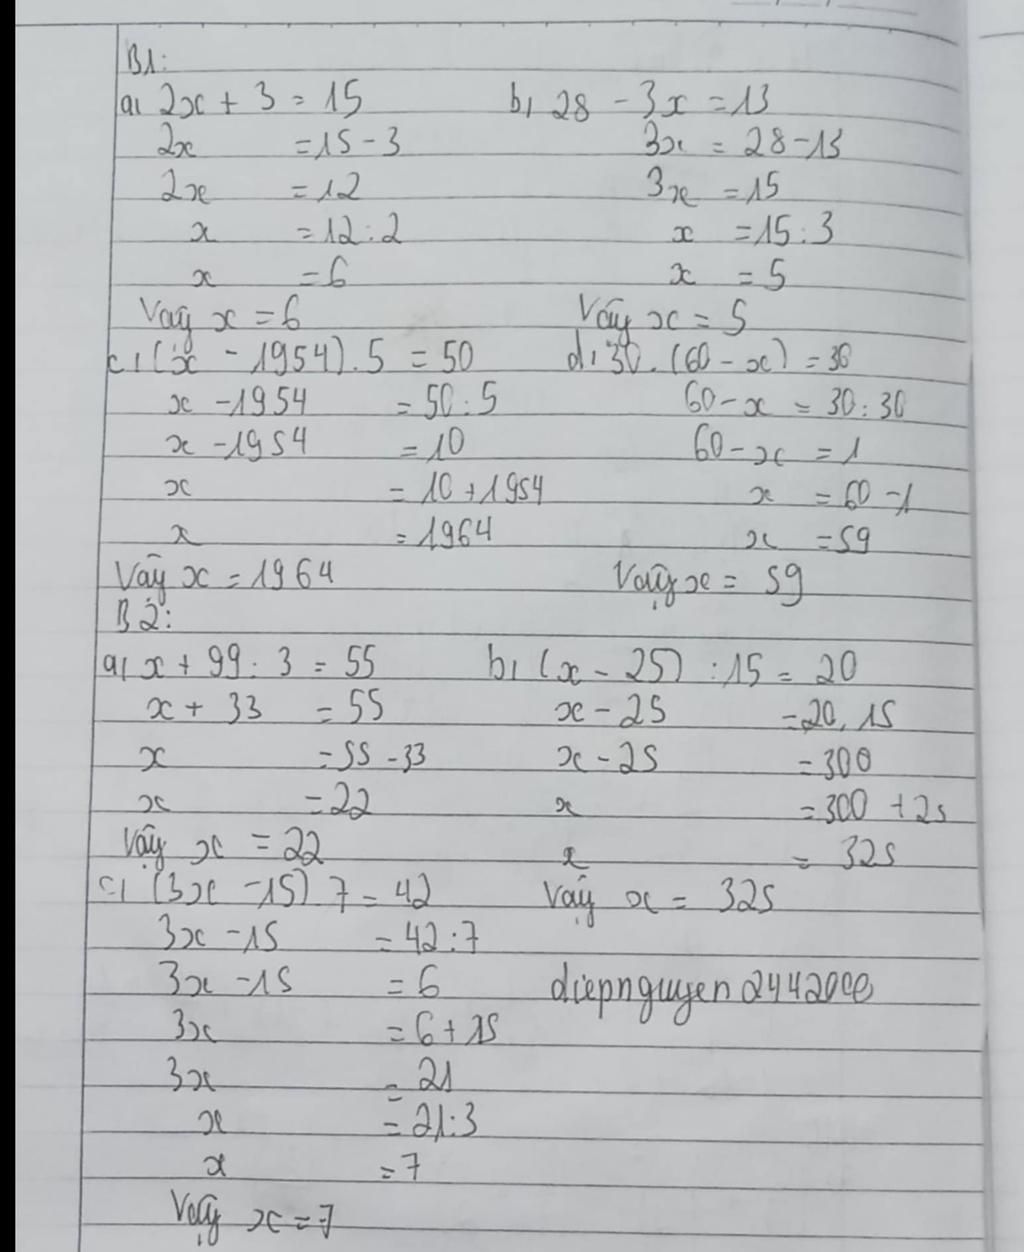 B1:
a, 2x + 3 = 15
2x = 15 - 3
2x = 12
x = 12 : 2
x = 6
Vậy x = 6
b, 28 - 3x = 13
3x = 28 - 13
3x = 15
x = 15 : 3
x = 5
Vậy x = 5
c, (x - 1954) . 5 = 50
x - 1954 = 50 : 5
x - 1954 = 10
x = 10 + 1954
x = 1964
Vậy x = 1964
d, 30 . (60 - x) = 30
60 - x = 30 : 30
60 - x = 1
x = 60 - 1
x = 59
Vậy x = 59
B2:
a, x + 99 : 3 = 55
x + 33 = 55
x = 55 - 33
x = 22
Vậy x = 22
b, (x - 25) : 15 = 20
x - 25 = 20 . 15
x - 25 = 300
x = 300 + 25
x = 325
Vậy x = 325
c, (3x - 15) 7 = 42
3x - 15 = 42 : 7
3x - 15 = 6
3x = 6 + 15
3x = 21
x = 21 : 3
x = 7
Vậy x = 7